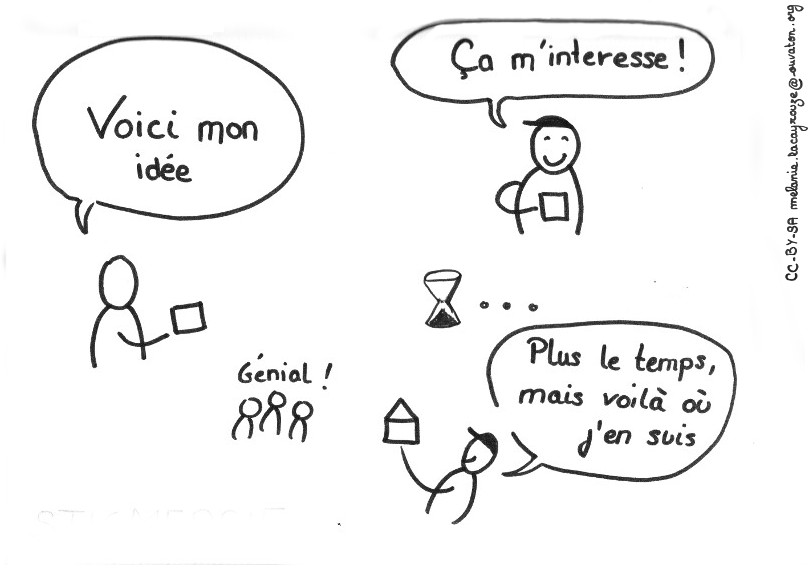 Voici mon
idée
Ça m'interesse !
Génial !
Plus le temps,
mais voilà où
j'en suis
CC-BY-SA melanie.lacayrouze@ouvaton.org